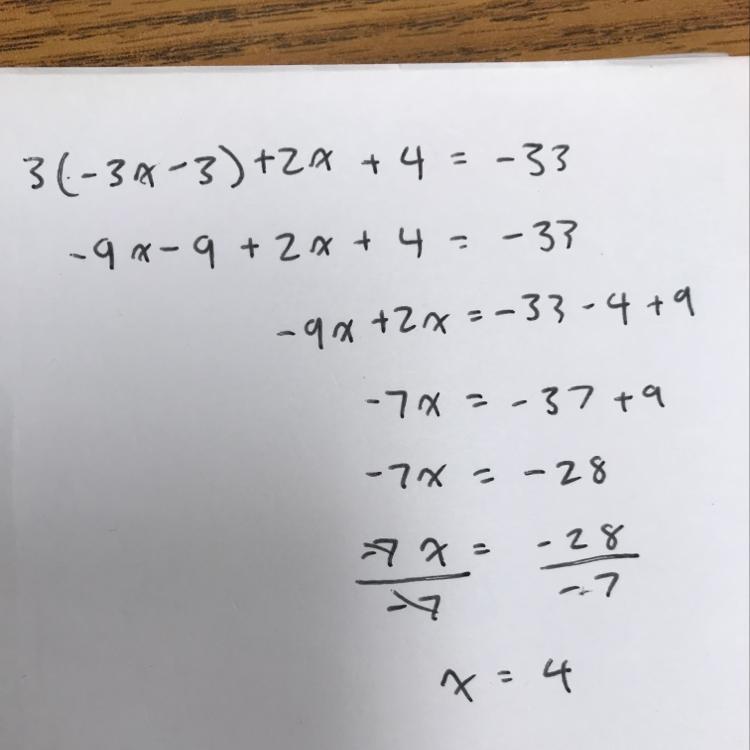 3(-3x-3)+2x + 4 = -33
-9x-9 + 2x + 4 = -33
-9x+2x = -33 - 4 + 9
-7x = -37 + 9
-7x = -28
-7x/-7 = -28/-7
x = 4